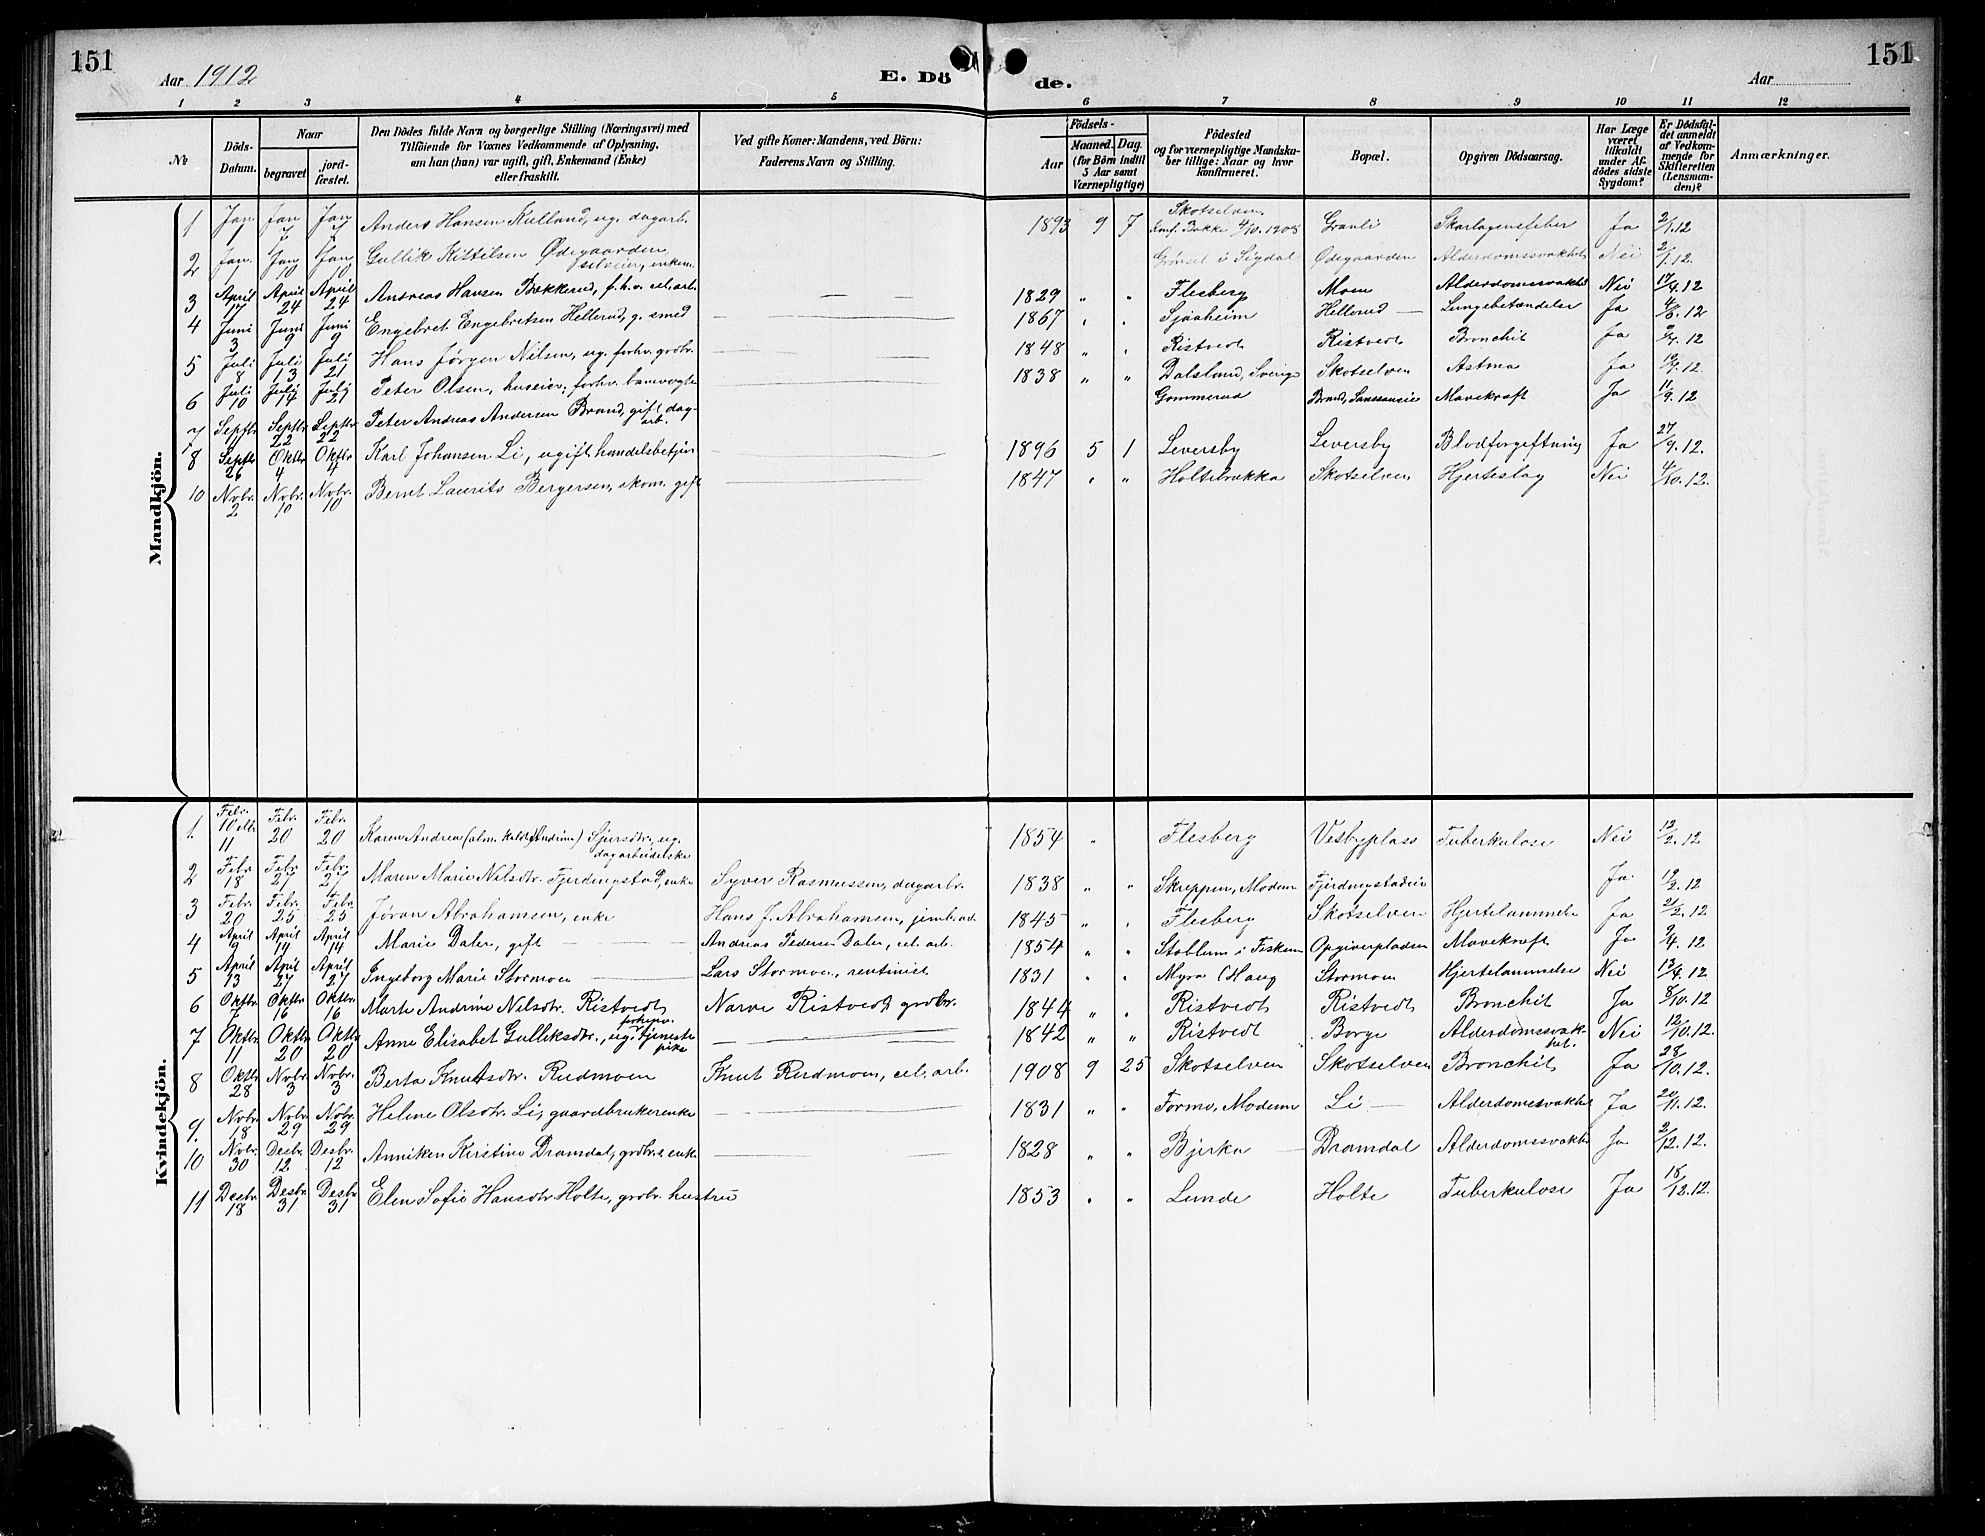 151
Aar 1912
E. Dö
de.
Aar
151
1 2 3 4 5 6 7 8 9 10 11 12
No
Döds-Datum.
Naar
begravet
jord-fæstet.
Den Dödes fulde Navn og borgerlige Stilling (Næringsvei) med
Tilföiende for Voxnes Vedkommende af Oplysning,
om han (hun) var ugift, gift, Enkemand (Enke)
eller fraskilt.
Ved gifte Koner: Mandens, ved Börn:
Faderens Navn og Stilling.
Födsels-
Aar
Maaned. Dag.
(for Börn indtil
5 Aar samt
Værnepligtige)
Födested
og for værnepligtige Mandska-
ber tillige: Naar og hvor
konfirmeret.
Bopæl.
Opgiven Dödsaarsag.
Har Læge
været
tilkaldt
under Af-
dödes sidste
Sygdom?
Er Dödsfal-
det anmeldt
af Vedkom-
mende for
Skifteretten
(Lensman-
den)?
Anmærkninger.
Mandkjön.
1 Jan. 1 Jan 7 Jan 7 Anders Hansen Kulland, ug. dagarb. 1893 9 7 Skotselven Konf. Bakke 4/10.1908 Granli Skarlagensfeber Ja 2/1.12
2 Jan. 1 Jan 10 Jan 10 Gullik Kittilsen Ødegaarden selveier, enkem. Grønset i Sigdal Ødegaarden Alderdomssvakhet Nei 2/1.12.
3 April 17 April 24 April 24 Andreas Hansen Bekkerud, f.h.v. cel.arb. — — 1829 " " Flesberg Moen Alderdomssvakhet Nei 17/4.12
4 Juni 3 Juni 9 Juni 9 Engebret Engebretsen Hellerud, g. smed 1867 " " Sjåaheim Hellerud — Lungebetændelse Ja 4/6.12
5 Juli 8 Juli 13 Juli 21 Hans Jørgen Nilsen, ug. forhv. grdbr. 1848 " " Ristvedt Ristvedt Bronchit Ja 9/7.12
6 Juli 10 Juli 14 Juli 21 Peter Olsen, huseier, forhv. banevogter 1838 " " Dalsland, Sverige Skotselven Astma Ja 10/7.12
7 Septbr. Septbr 22 Septbr 22 Peter Andreas Andersen Brand, gift dag-arb. Gommerud Brand, Sanssousie Mavekræft Ja 11/9.12
8 Septbr 26 Oktbr 4 Oktbr 4 Karl Johansen Li, ugift handelsbetjen 1896 5 1 Leversby Leversby Blodforgiftning Ja 27/9.12.
10 Novbr. 2 Novbr. 10 Novbr. 10 Bernt Laurits Bergersen, skom. gift 1847 " " Holtebrækka Skotselven Hjerteslag Nei 4/10.12.
Kvindekjön.
1. Febr. 10 11 Febr. 20 Febr. 20 Karen Andrea (alm. kaldet Andrina) Sjursdtr., ug. dagarbeiderske 1854 " Flesberg Vesbyplass Tuberkulose Nei 12/2.12
2 Febr. 18 Febr. 27 Febr. 27 Maren Marie Nilsdtr. Fjerdingstad, enke Syver Rasmussen, dagarbr. 1838 " " Skreppen, Modum Fjerdingstadeie Ja 19/2.12
3 Febr. 20 Febr. 25 Febr. 25 Jøran Abrahamsen, enke Hans J. Abrahamsen, jernb.arb 1845 " " Flesberg Skotselven Hjertelammelse Ja 21/2.12
4 April 9 April 14 April 14 Marie Daler, gift — Andreas Pedersen Daler, cel. arb. 1854 " " Stablum i Fiskum Opgiverpladsen Mavekræft Ja 9/4.12
5 April 13 April 27 April 27 Ingeborg Marie Stormoen Lars Stormoen, rentinist 1831 " " Myra (Haug Stormoen Hjertelammelse Nei 13/4.12
6 Oktbr. 7 Oktbr. 16 Oktbr. 16 Marte Andrine Nilsdtr. Ristvedt Narve Ristvedt grdbr. 1844 " " Ristvedt Ristvedt Bronchit Ja 8/10.12
7 Oktbr 11 Oktbr 20 Oktbr 20 Anne Elisabet Gulliksdtr., ug. forhenv. tjenestepike — 1842 " " Ristvedt Borge Alderdomssvak-het. Nei 12/10.12.
8 Oktbr 28 Novbr. 3 Novbr. 3 Berta Knutsdtr. Rudmoen Knut Rudmoen, cel. arb. 1908 9 25 Skotselven Skotselven Bronchit Ja 28/10.12.
9. Novbr. 18 Novbr 29 Novbr. 29 Helene Olsdtr. Li, gaardbrukerenke — 1831 " " Formo, Modum Li — Alderdomssvakhet Ja 20/11.12.
10 Novbr. 30 Desbr. 12 Desbr. 12 Anniken Kirstine Dramdal, grdbr.s enke — 1828 " " Bjerka — Dramdal Alderdomssvakhet Ja 2/12.12.
11 Desbr 18 Desbr 31 Desbr 31 Elen Sofie Hansdtr. Holte, grdbr. hustru 1853 " " Lunde Holte Tuberkulose Ja 18/12.12.